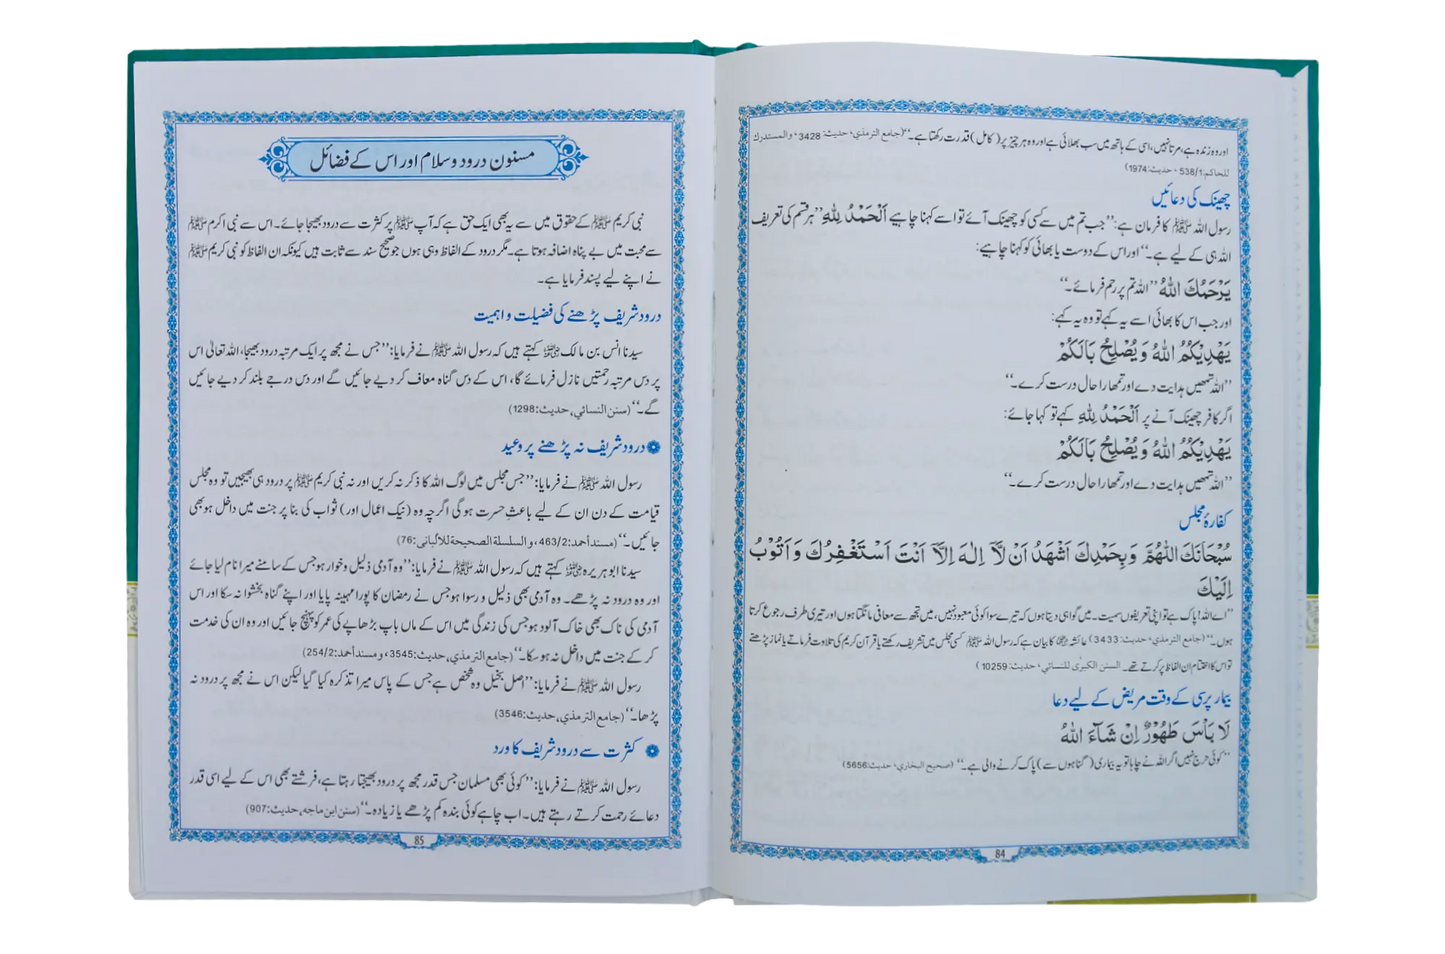 اور وہ زندہ ہے، مرتا نہیں، اسی کے ہاتھ میں سب بھلائی ہے اور وہ ہر چیز پر (کامل) قدرت رکھتا ہے۔“ (جامع الترمذي، حدیث: 3428، والمستدرك
للحاكم: 538/1، حدیث: 1974)
چھینک کی دعائیں
رسول اللہ ﷺ کا فرمان ہے: ”جب تم میں سے کسی کو چھینک آئے تو اسے کہنا چاہیے اَلْحَمْدُ لِلّٰهِ ”ہر قسم کی تعریف
اللہ ہی کے لیے ہے۔“ اور اس کے دوست یا بھائی کو کہنا چاہیے:
يَرْحَمُكَ اللّٰهُ ”اللہ تم پر رحم فرمائے۔“
اور جب اس کا بھائی اسے یہ کہے تو وہ یہ کہے:
يَهْدِيْكُمُ اللّٰهُ وَيُصْلِحُ بَالَكُمْ
”اللہ تمھیں ہدایت دے اور تمھارا حال درست کرے۔“
اگر کافر چھینک آنے پر اَلْحَمْدُ لِلّٰهِ کہے تو کہا جائے:
يَهْدِيْكُمُ اللّٰهُ وَيُصْلِحُ بَالَكُمْ
”اللہ تمھیں ہدایت دے اور تمھارا حال درست کرے۔“
کفارۂ مجلس
سُبْحَانَكَ اللّٰهُمَّ وَبِحَمْدِكَ اَشْهَدُ اَنْ لَّآ اِلٰهَ اِلَّآ اَنْتَ اَسْتَغْفِرُكَ وَاَتُوْبُ
اِلَيْكَ
”اے اللہ! پاک ہے تو اپنی تعریفوں سمیت۔ میں گواہی دیتا ہوں کہ تیرے سوا کوئی معبود نہیں، میں تجھ سے معافی مانگتا ہوں اور تیری طرف رجوع کرتا
ہوں۔“ (جامع الترمذي، حدیث: 3433) عائشہ ؓ کا بیان ہے کہ رسول اللہ ﷺ کسی مجلس میں تشریف رکھتے یا قرآن کریم کی تلاوت فرماتے یا نماز پڑھتے
تو اس کا اختتام ان الفاظ پر کرتے تھے۔ السنن الکبری للنسائي، حدیث: 10259)
بیمار پرسی کے وقت مریض کے لیے دعا
لَا بَاْسَ طَهُوْرٌ اِنْ شَآءَ اللّٰهُ
”کوئی حرج نہیں اگر اللہ نے چاہا تو یہ بیماری (گناہوں سے) پاک کرنے والی ہے۔“ (صحیح البخاري، حدیث: 5656)
84
مسنون درود و سلام اور اس کے فضائل
نبی کریم ﷺ کے حقوق میں سے یہ بھی ایک حق ہے کہ آپ ﷺ پر کثرت سے درود بھیجا جائے۔ اس سے نبی اکرم ﷺ
سے محبت میں بے پناہ اضافہ ہوتا ہے۔ مگر درود کے الفاظ وہی ہوں جو صحیح سند سے ثابت ہیں کیونکہ ان الفاظ کو نبی کریم ﷺ
نے اپنے لیے پسند فرمایا ہے۔
درود شریف پڑھنے کی فضیلت و اہمیت
سیدنا انس بن مالک ؓ کہتے ہیں کہ رسول اللہ ﷺ نے فرمایا: ”جس نے مجھ پر ایک مرتبہ درود بھیجا، اللہ تعالیٰ اس
پر دس مرتبہ رحمتیں نازل فرمائے گا، اس کے دس گناہ معاف کر دیے جائیں گے اور دس درجے بلند کر دیے جائیں
گے۔“ (سنن النسائي، حدیث: 1298)
درود شریف نہ پڑھنے پر وعید
رسول اللہ ﷺ نے فرمایا: ”جس مجلس میں لوگ اللہ کا ذکر نہ کریں اور نہ نبی کریم ﷺ پر درود ہی بھیجیں تو وہ مجلس
قیامت کے دن ان کے لیے باعثِ حسرت ہوگی اگرچہ وہ (نیک اعمال اور) ثواب کی بنا پر جنت میں داخل ہو بھی
جائیں۔“ (مسند أحمد: 463/2، والسلسلة الصحيحة للألبانی: 76)
سیدنا ابو ہریرہ ؓ کہتے ہیں کہ رسول اللہ ﷺ نے فرمایا: ”وہ آدمی ذلیل و خوار ہو جس کے سامنے میرا نام لیا جائے
اور وہ درود نہ پڑھے۔ وہ آدمی بھی ذلیل و رسوا ہو جس نے رمضان کا پورا مہینہ پایا اور اپنے گناہ بخشوا نہ سکا اور اس
آدمی کی ناک بھی خاک آلود ہو جس کی زندگی میں اس کے ماں باپ بڑھاپے کی عمر کو پہنچ جائیں اور وہ ان کی خدمت
کر کے جنت میں داخل نہ ہو سکا۔“ (جامع الترمذي، حدیث: 3545، و مسند أحمد: 254/2)
رسول اللہ ﷺ نے فرمایا: ”اصل بخیل وہ شخص ہے جس کے پاس میرا تذکرہ کیا گیا لیکن اس نے مجھ پر درود نہ
پڑھا۔“ (جامع الترمذي، حدیث: 3546)
کثرت سے درود شریف کا ورد
رسول اللہ ﷺ نے فرمایا: ”کوئی بھی مسلمان جس قدر مجھ پر درود بھیجتا رہتا ہے، فرشتے بھی اس کے لیے اسی قدر
دعائے رحمت کرتے رہتے ہیں۔ اب چاہے کوئی بندہ کم پڑھے یا زیادہ۔“ (سنن ابن ماجہ، حدیث: 907)
85